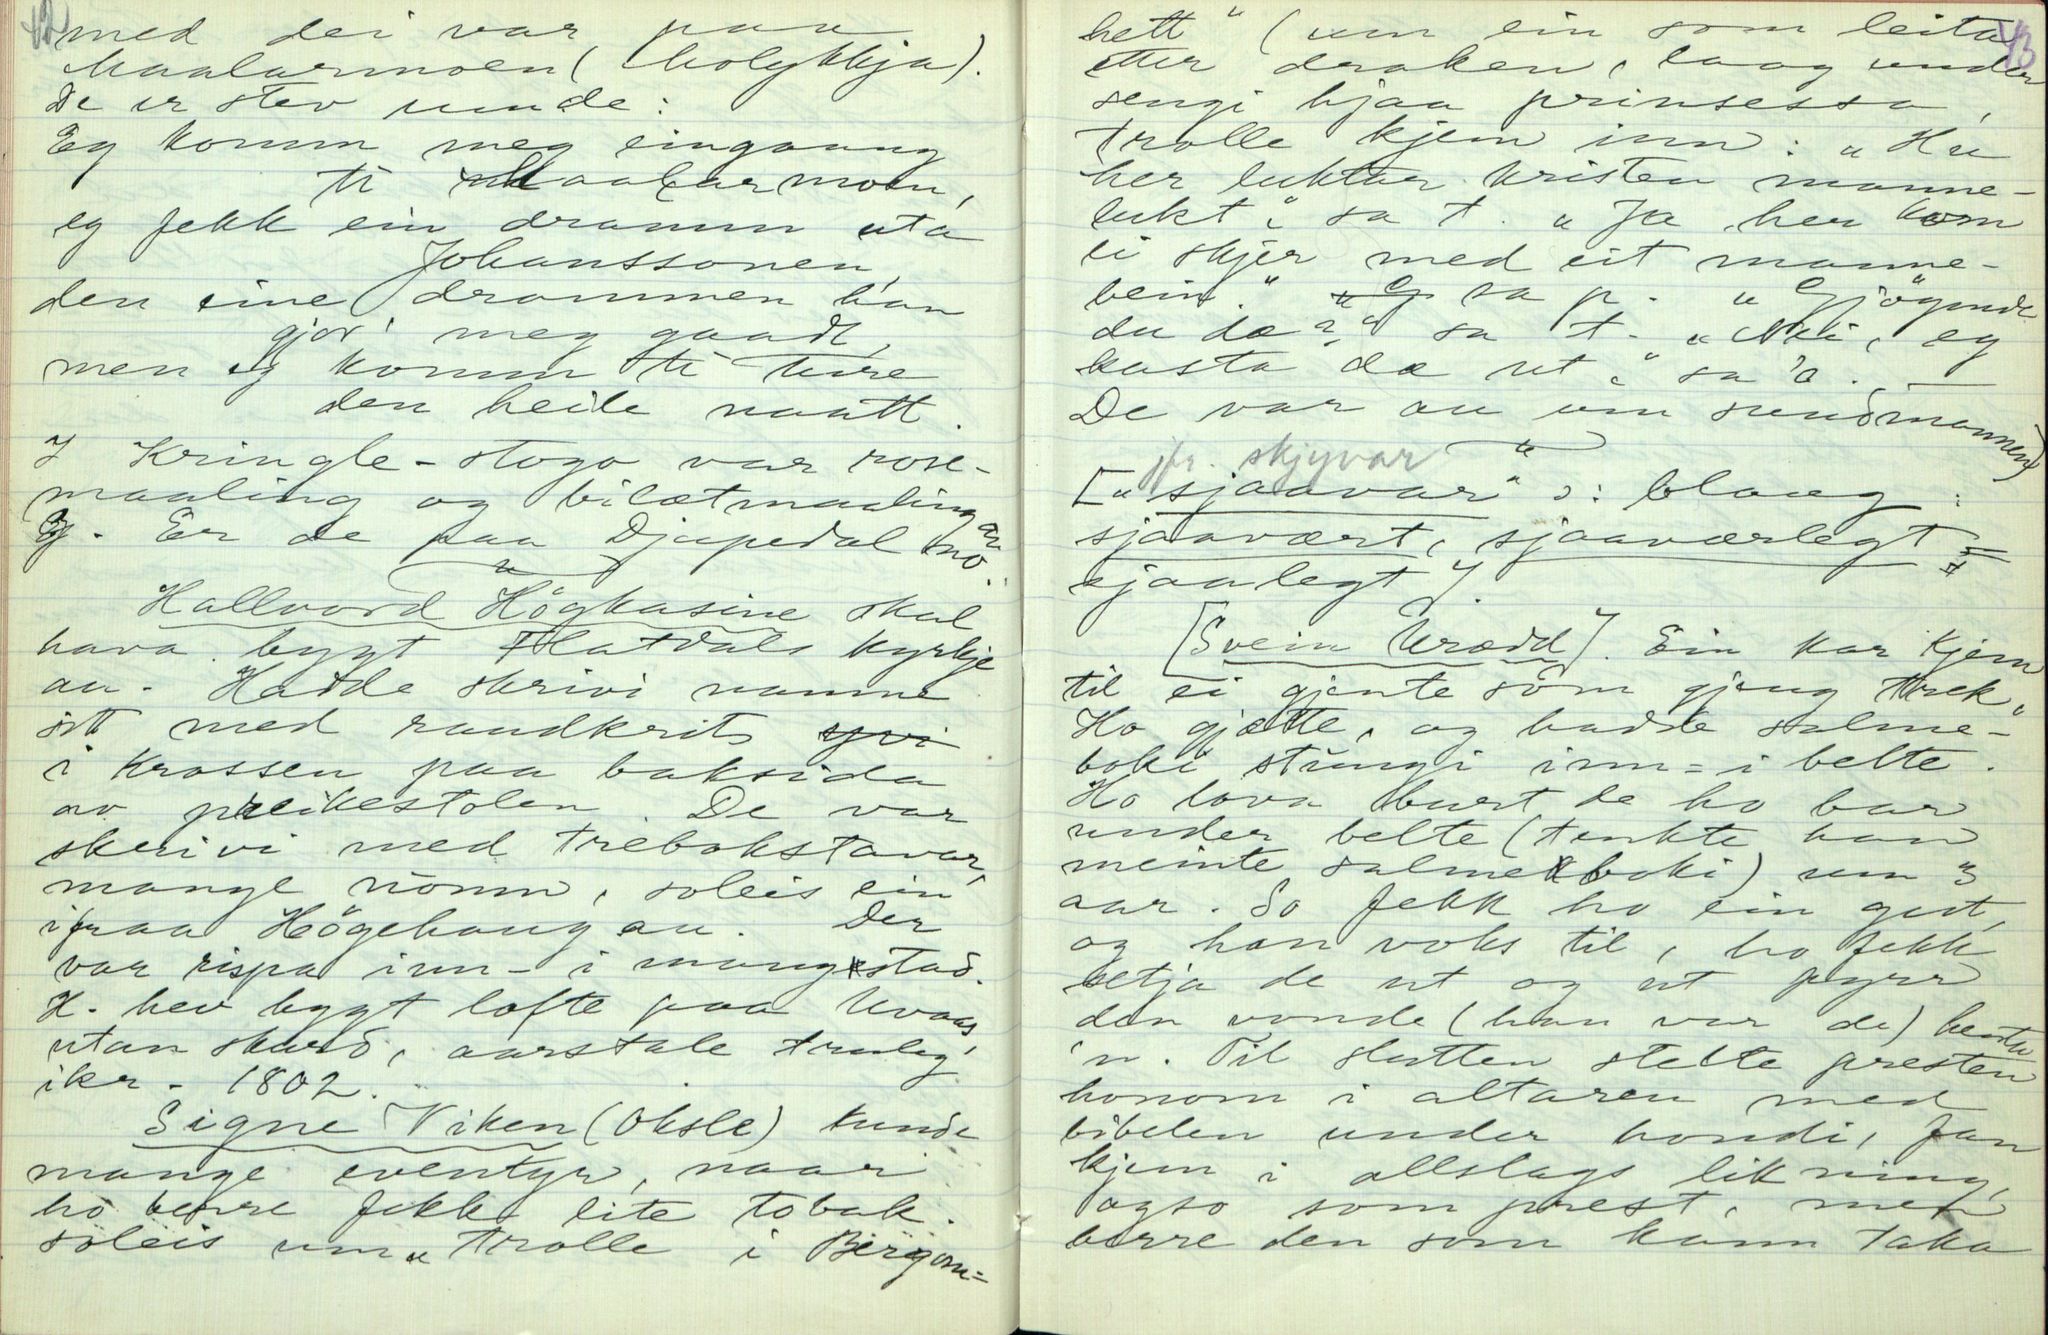 12
med dei var paa
Maalarmoen (Molykkja).
De er stev unde:
Eg komm meg eingaang
ti Maalarmoen,
eg fekk ein dramm uta
Johanssonen,
den eine drammen han
gjor' meg gaadt,
men eg komm ti ture
den heile naatt.
I Kringle-stogo var rose-
maaling og biletmaaling au
Eg. Er de paa Djupedal no.
Hallvord Högkasine skal
hava bygt Flatdals kyrkje
au. Hadde skrivi namne
sitt med raudkrit
i krossen paa baksida
av preikestolen. De var
skrivi med trebokstavar,
mange nomn, soleis ein
ifraa Högehaug au. Der
var rispa inn-i mang stad.
H. hev bygt lofte paa Uvaas,
utan skurd, aarstale truleg
ikr. 1802.
Signe Viken (Oksle) kunde
mange eventyr, naar
ho berre fekk lite tobak.
soleis um „Trolle i Bergom=
13
hett" (um ein som leita
etter draken, laag under
sengi hjaa prinsessa,
trolle kjem inn: „Hu
her luktar kristen manne-
lukt," sa t. „Ja her kom
ei skjer med eit manne-
bein." sa p. „Gjögnde
du dæ?" sa t. „Nei, eg
kasta dæ ut," sa 'o.
De var au um sundmannen)
jfr. skjyvar
[„sjaavar" ɔ: blaug:
sjaavært, sjaaværlegt =
sjaalegt].
[Svein Urædd]. Ein kar kjem
til ei gjente som gjeng trek,
Ho gjætte, og hadde salme-
boki stungi inn=i belte.
Ho lova burt de ho bar
under belte (tenkte han
meinte salmeboki) um 3
aar. So fekk ho ein gut,
og han voks til, ho fekk
setja de ut og ut fyrr
den vonde (han var de) henta
'n. Til slutten stelte presten
honom i altaren med
bibelen under hondi, Fan
kjem i allslags likning,
ogso som prest, men
berre den som kann taka